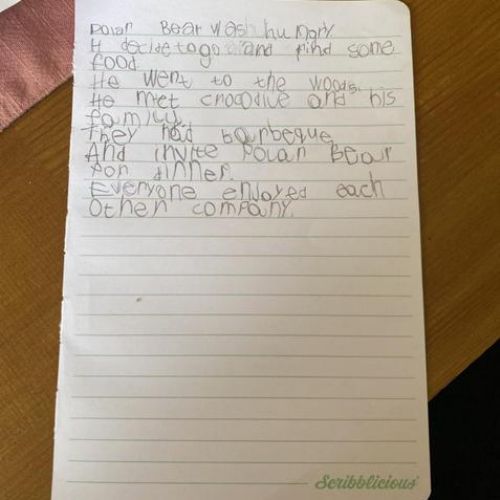 Polar Bear was hungry.
H decide to go and find some
food.
He went to the woods.
He met crocodile and his
family.
They had barbeque
And invite Polar Bear
for dinner.
Everyone enjoyed each
Other company.
Scribblicious